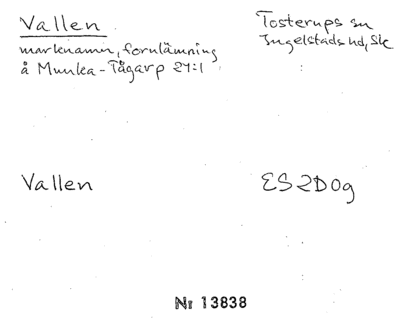 Vallen
Tosterups sn
marknamn, fornlämning
Ingelstads hd, Sk
å Munka-Tågarp 27:1
Vallen
ES2D0g
Nr 13838